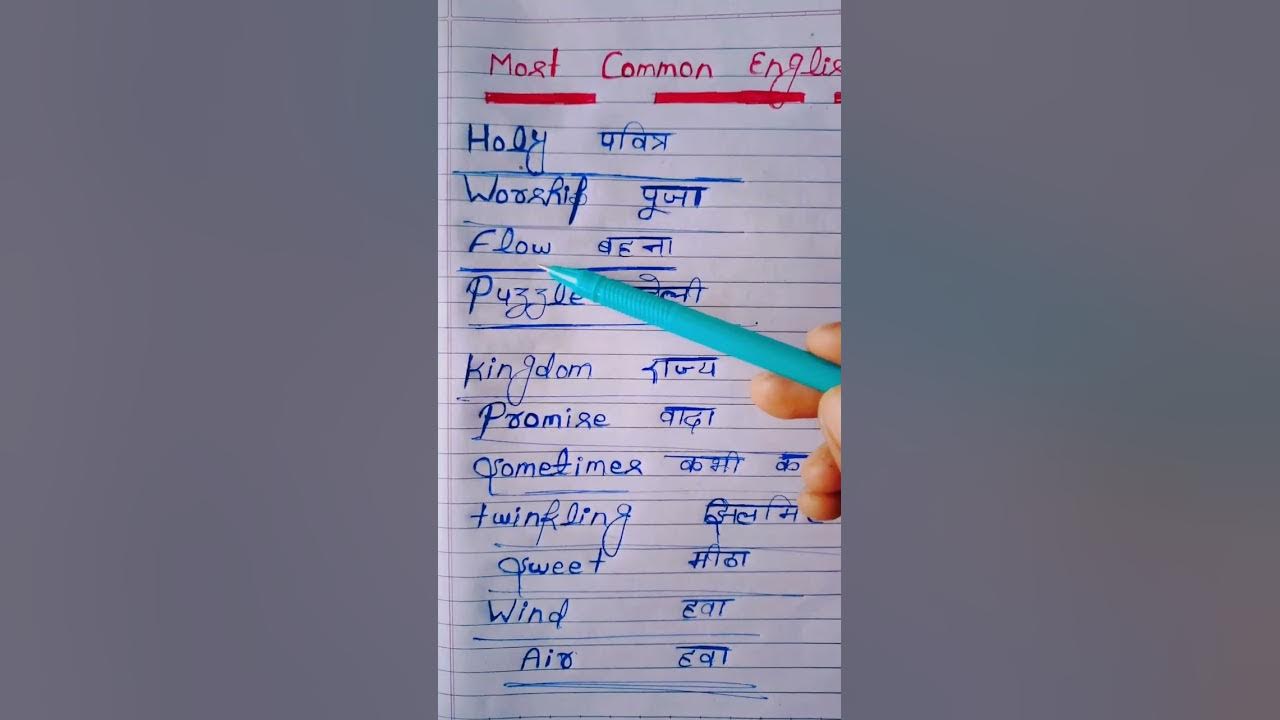 Most Common Englis
Holy पवित्र
Worship पूजा
Flow बहना
Puzzle
Kingdom राज्य
Promise वादा
Sometimes कभी क
twinkling झिलमि
Sweet मीठा
Wind हवा
Air हवा